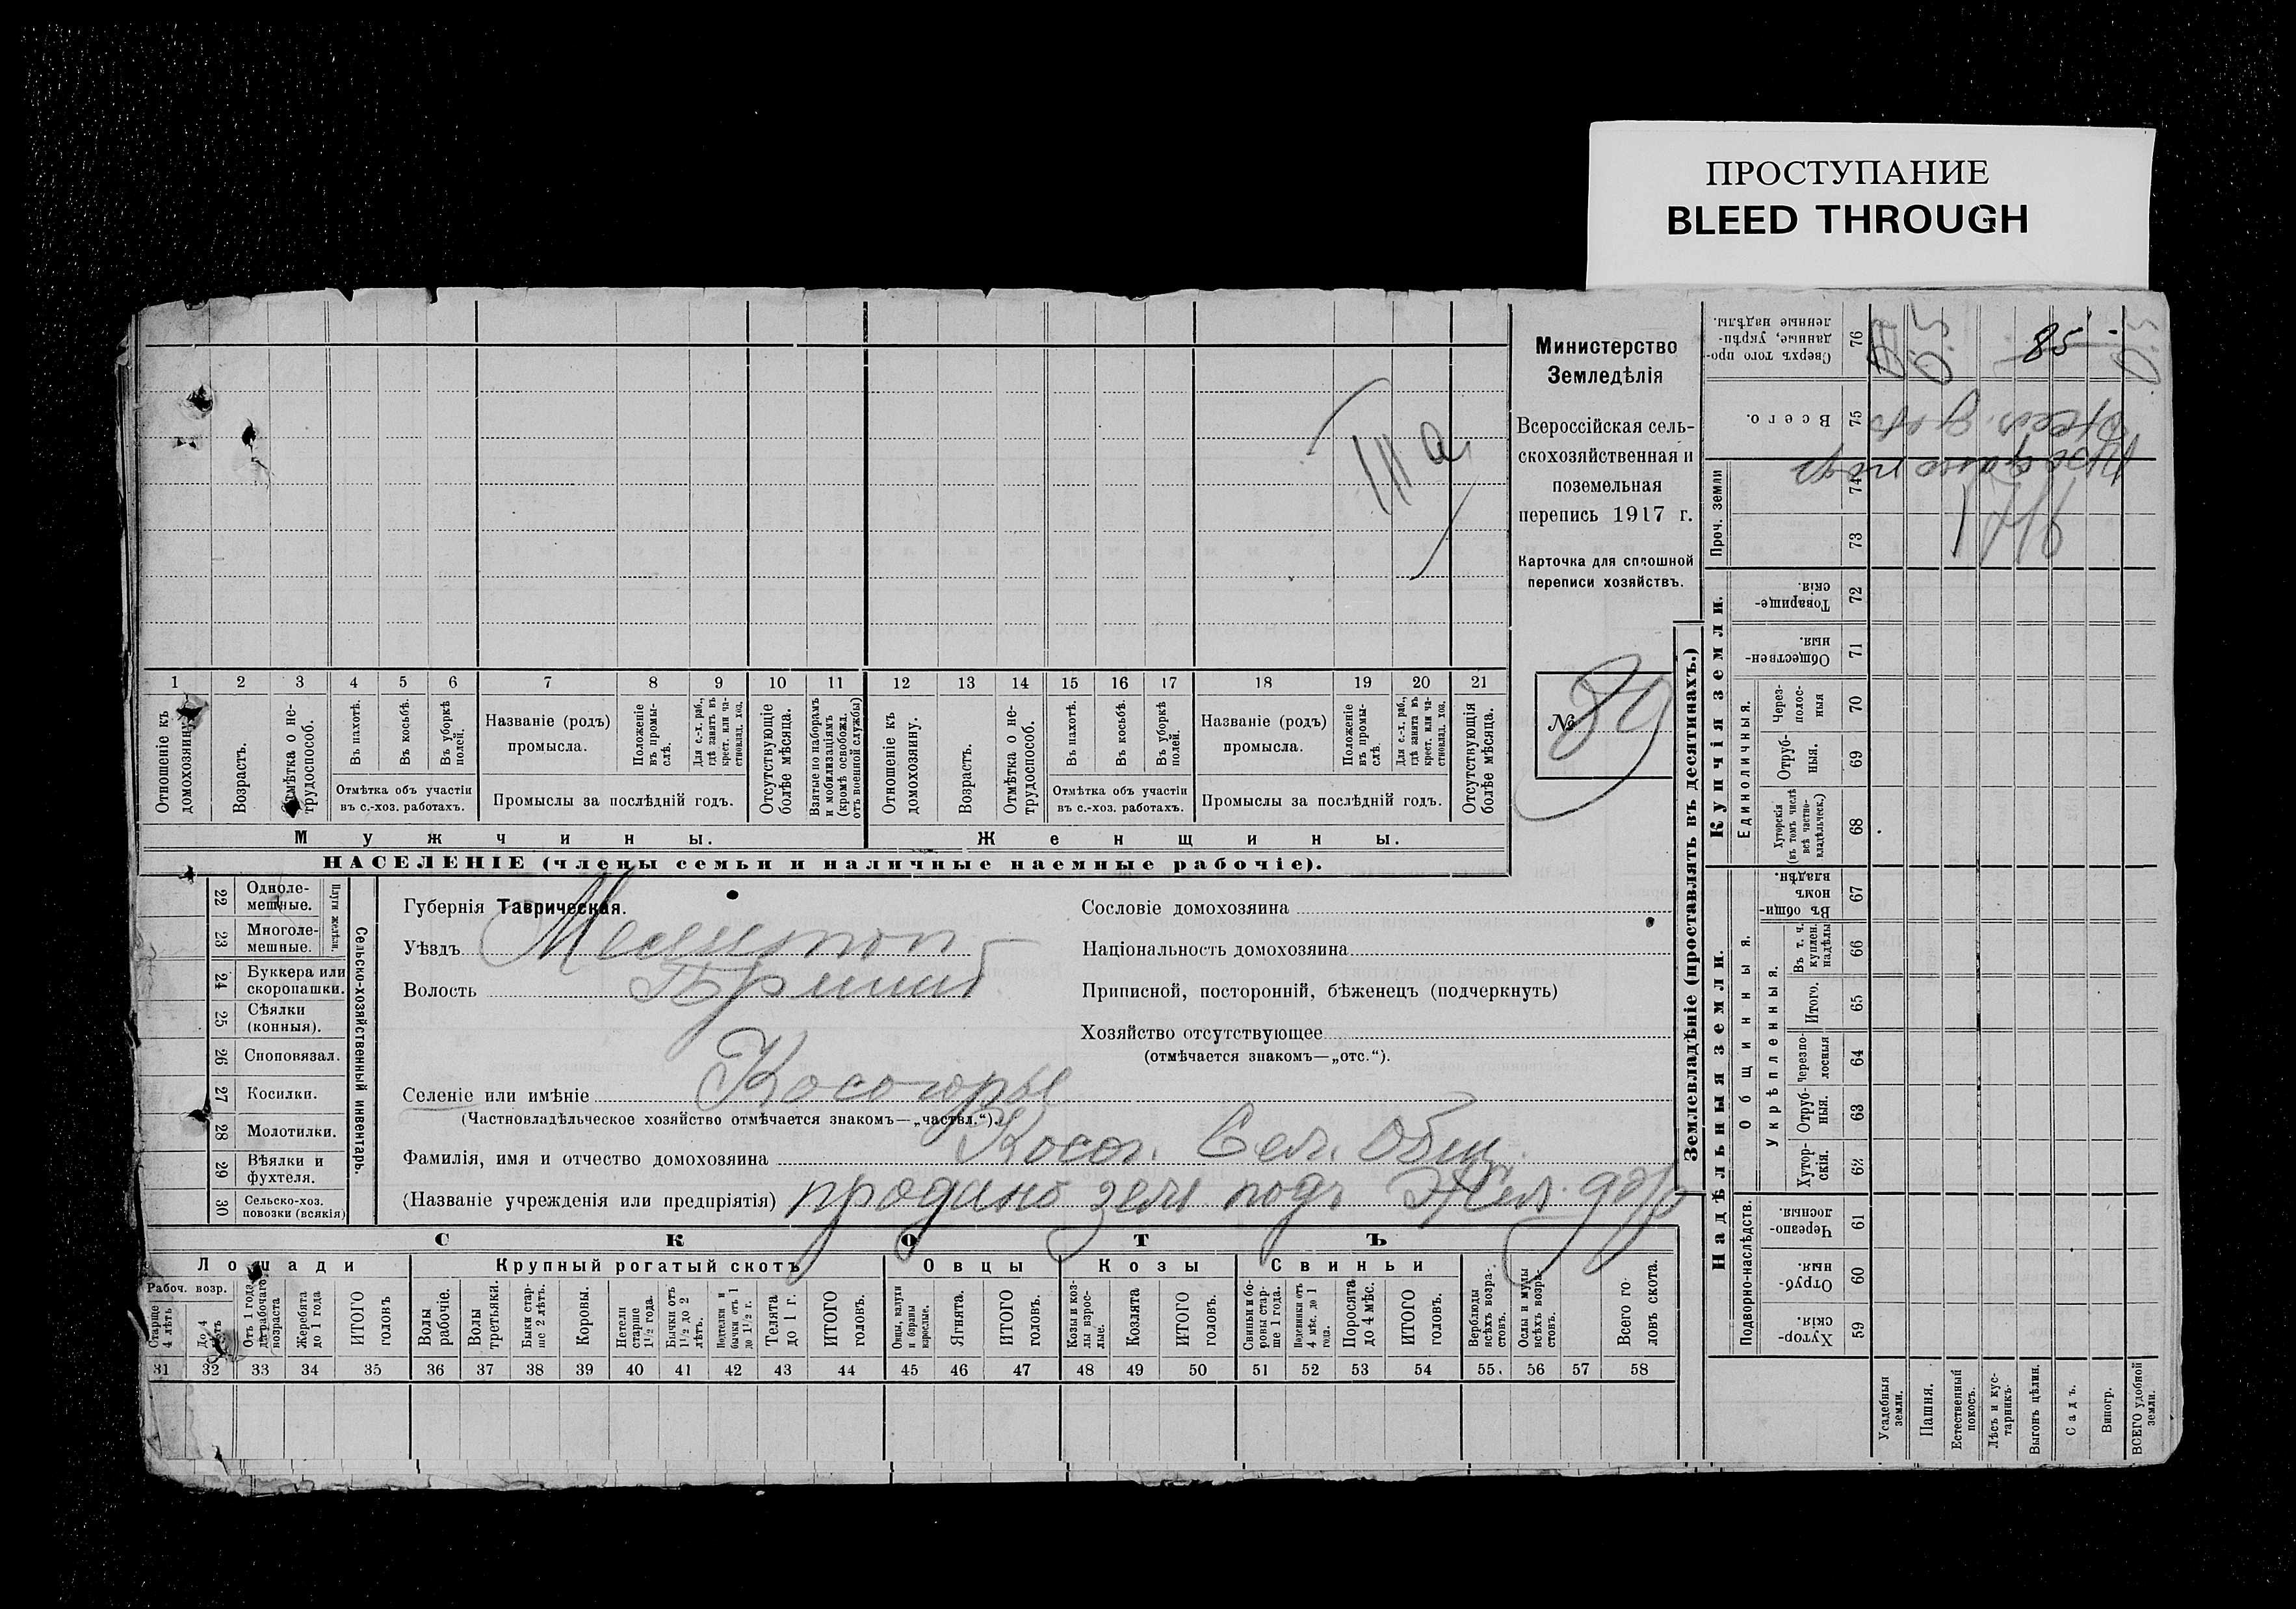 ПРОСТУПАНИЕ
BLEED THROUGH
Министерство
Земледѣлія
Всероссійская сель-
скохозяйственная и
поземельная
перепись 1917 г.
Карточка для сплошной
переписи хозяйствъ.
№ 89
III a
1 2 3 4 5 6 7 8 9 10 11 12 13 14 15 16 17 18 19 20 21
Отношеніе къ домохозяину.
Возрастъ.
Отмѣтка о не-трудоспособ.
Въ пахотѣ.
Въ косьбѣ.
Въ уборкѣ полей.
Отмѣтка объ участіи
въ с.-хоз. работахъ.
Названіе (родъ)
промысла.
Положеніе въ промы-слѣ.
Для с.-х. раб., гдѣ занятъ въ крест. или ча-стновлад. хоз.
Промыслы за послѣдній годъ.
Отсутствующіе болѣе мѣсяца.
Взятые по наборамъ и мобилизаціямъ (кромѣ освобожд. отъ военной службы)
Отношеніе къ домохозяину.
Возрастъ.
Отмѣтка о не-трудоспособ.
Въ пахотѣ.
Въ косьбѣ.
Въ уборкѣ полей.
Отмѣтка объ участіи
въ с.-хоз. работахъ.
Названіе (родъ)
промысла.
Положеніе въ промы-слѣ.
Для с.-х. раб., гдѣ занята въ крест. или ча-стновлад. хоз.
Промыслы за послѣдній годъ.
Отсутствующія болѣе мѣсяца.
Мужчины.
Женщины.
НАСЕЛЕНІЕ (члены семьи и наличные наемные рабочіе).
22 Одноле-мешные.
23 Многоле-мешные.
Плуги желѣзн.
24 Буккера или скоропашки.
25 Сѣялки (конныя).
26 Сноповязал.
27 Косилки.
28 Молотилки.
29 Вѣялки и фухтеля.
30 Сельско-хоз. повозки (всякія)
Сельско-хозяйственный инвентарь.
Губернія Таврическая.
Уѣздъ Мелитоп
Волость
Селеніе или имѣніе Косогоры
(Частновладѣльческое хозяйство отмѣчается знакомъ—„частвл.“).
Фамилія, имя и отчество домохозяина Косог. Сел. Общ.
(Названіе учрежденія или предпріятія) продано земл подъ Жел. дор
Сословіе домохозяина
Національность домохозяина
Приписной, посторонній, бѣженецъ (подчеркнуть)
Хозяйство отсутствующее
(отмѣчается знакомъ—„отс.“).
СКОТЪ
Лошади
Крупный рогатый скотъ
Овцы
Козы
Свиньи
Рабоч. возр.
Старше 4 лѣтъ
До 4 лѣтъ
Отъ 1 года до рабочаго возраста
Жеребята до 1 года
ИТОГО головъ
Волы рабочіе.
Волы третьяки.
Быки стар-ше 2 лѣтъ.
Коровы.
Нетели старше 1 1/2 года.
Бычки отъ 1 1/2 до 2 лѣтъ.
Подтелки и бычки отъ 1 до 1 1/2 г.
Телята до 1 г.
ИТОГО головъ.
Овцы, валухи и бараны взрослые.
Ягнята.
ИТОГО головъ.
Козы и коз-лы взрос-лые.
Козлята
ИТОГО головъ.
Свиньи и бо-ровы стар-ше 1 года.
Подсвинки отъ 4 мѣс. до 1 года.
Поросята до 4 мѣс.
ИТОГО головъ.
Верблюды всѣхъ возра-стовъ.
Ослы и мулы всѣхъ возра-стовъ.
Всего го ловъ скота.
31 32 33 34 35 36 37 38 39 40 41 42 43 44 45 46 47 48 49 50 51 52 53 54 55. 56 57 58
Землевладѣніе (проставлять въ десятинахъ.)
Надѣльныя земли.
Купчія земли.
Проч. земли
Подворно-наслѣдств.
Общинныя.
Укрѣпленныя.
Единоличныя.
Хутор-скія. 59
Отруб-ныя. 60
Черезпо-лосныя. 61
Хутор-скія. 62
Отруб-ныя. 63
Черезпо-лосныя 64
Итого. 65
Въ т. ч. куплен. надѣлы 66
Въ общи-номъ владѣн. 67
Хуторскія (въ томъ числѣ всѣ частно-владѣльческ.) 68
Отруб-ныя. 69
Через-полос-ныя 70
Обществен-ныя. 71
Товарище-скія. 72
73
74
Всего. 75
Сверхъ того про-данные, укрѣп-ленные надѣлы. 76
Усадебныя земли.
Пашня.
Естественный покосъ.
Лѣсъ и кус-тарникъ.
Выгонъ цѣлин.
Садъ.
Виногр.
ВСЕГО удобной земли.
85
продано подъ
Жел. дор